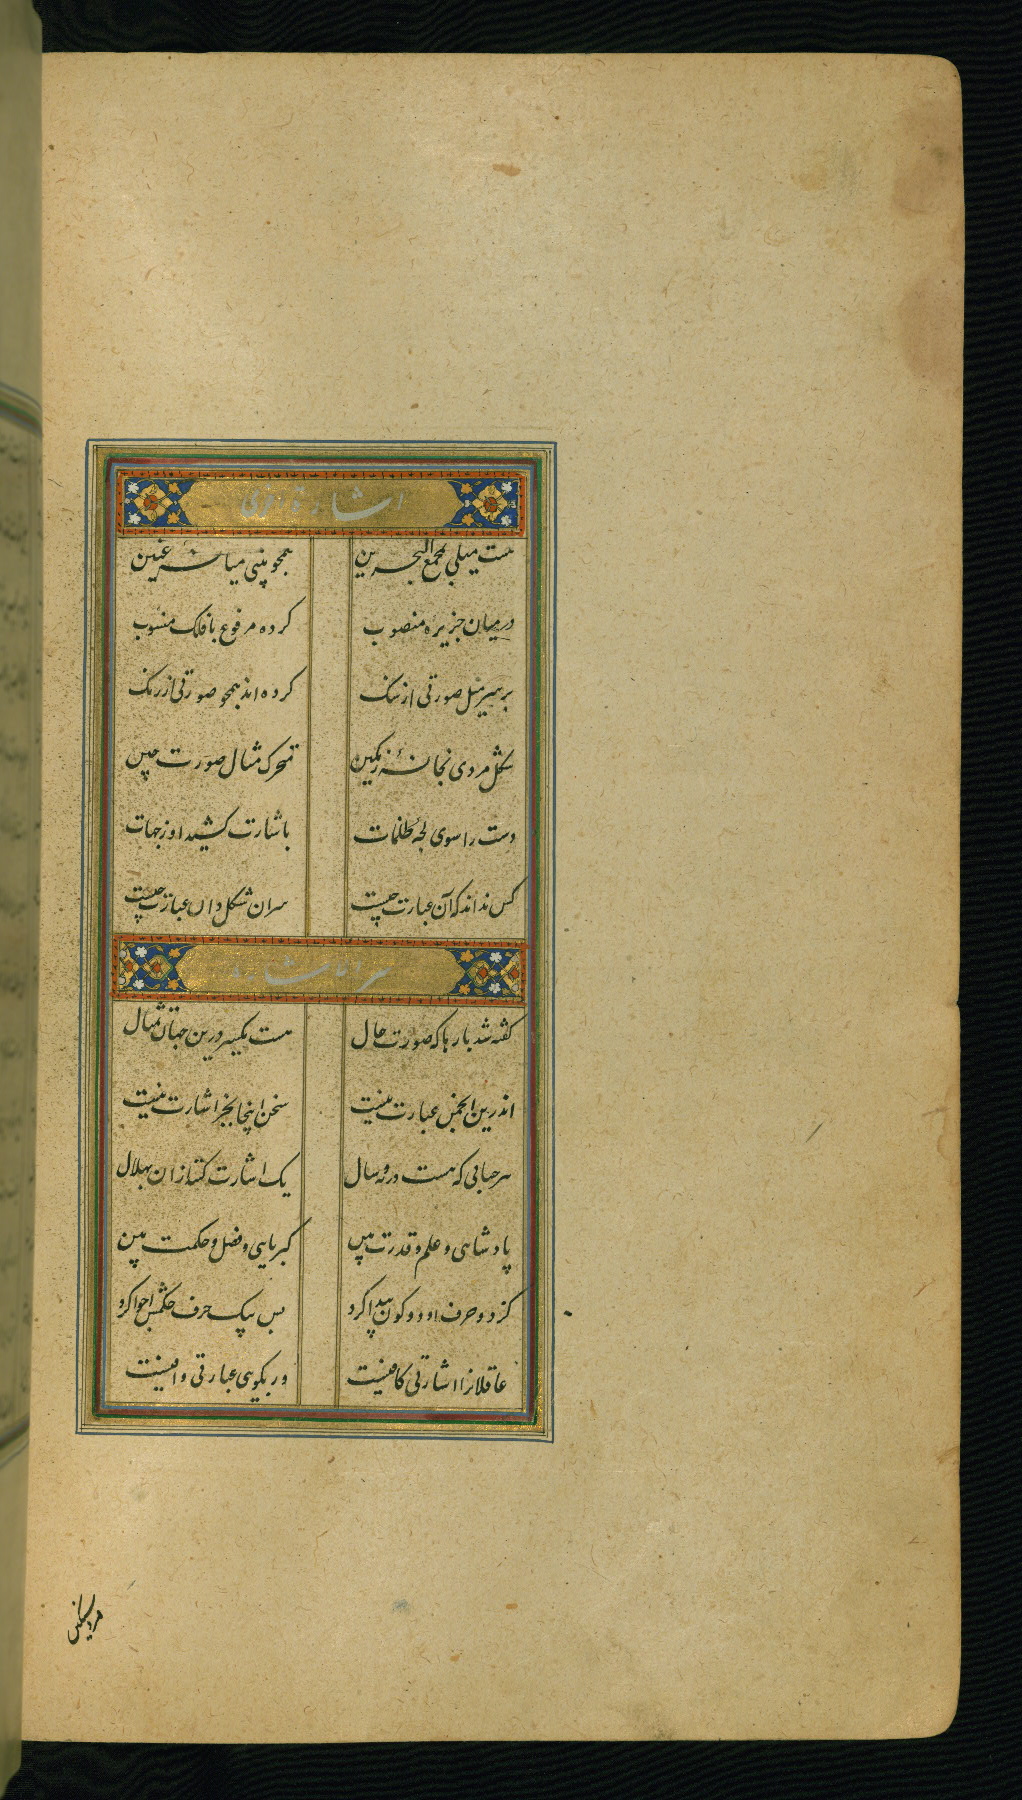 اشارة اخری
هست میلی بمجمع البحرین همچو بینی میانهٔ عینین
در میان جزیره منصوب کرده مرفوع با فلک منسوب
بر سر میل صورتی از سنک کرده اند همچو صورتی از رنک
شکل مردی نجانهٔ زیکین متحرک مثال صورت چین
دست را سوی لجهٔ ظلمات باشارت کشیده او ز جهات
کس نداند که آن عبارت چیست سر ان شکل و آن عبارت چیست
سر اشارت
کفته شد بارها که صورت حال هست یکسر درین جهان تمثال
اندرین انجمن عبارت نیست سخن اینجا بجز اشارت نیست
هر حبابی که هست در و سال یک اشارت کند از ان بهلال
پادشاهی و علم و قدرت بین کبریایی و فضل و حکمت بین
کز دو حرف او دو کون پیدا کرد پس بیک حرف حکمش اجرا کرد
عاقلانرا اشارتی کافیست ور بکویی عبارتی وافیست